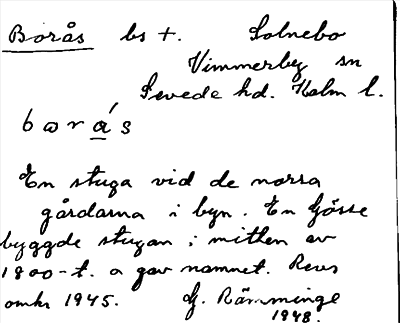 Borås bs +. Solnebo
Vimmerby sn
Sevede hd. Kalm l.
bɷrás
En stuga vid de norra
gårdarna i byn. En Gösse
byggde stugan i mitten av
1800-t. o gav namnet. Revs
omkr 1945. G. Rämminge
1948.